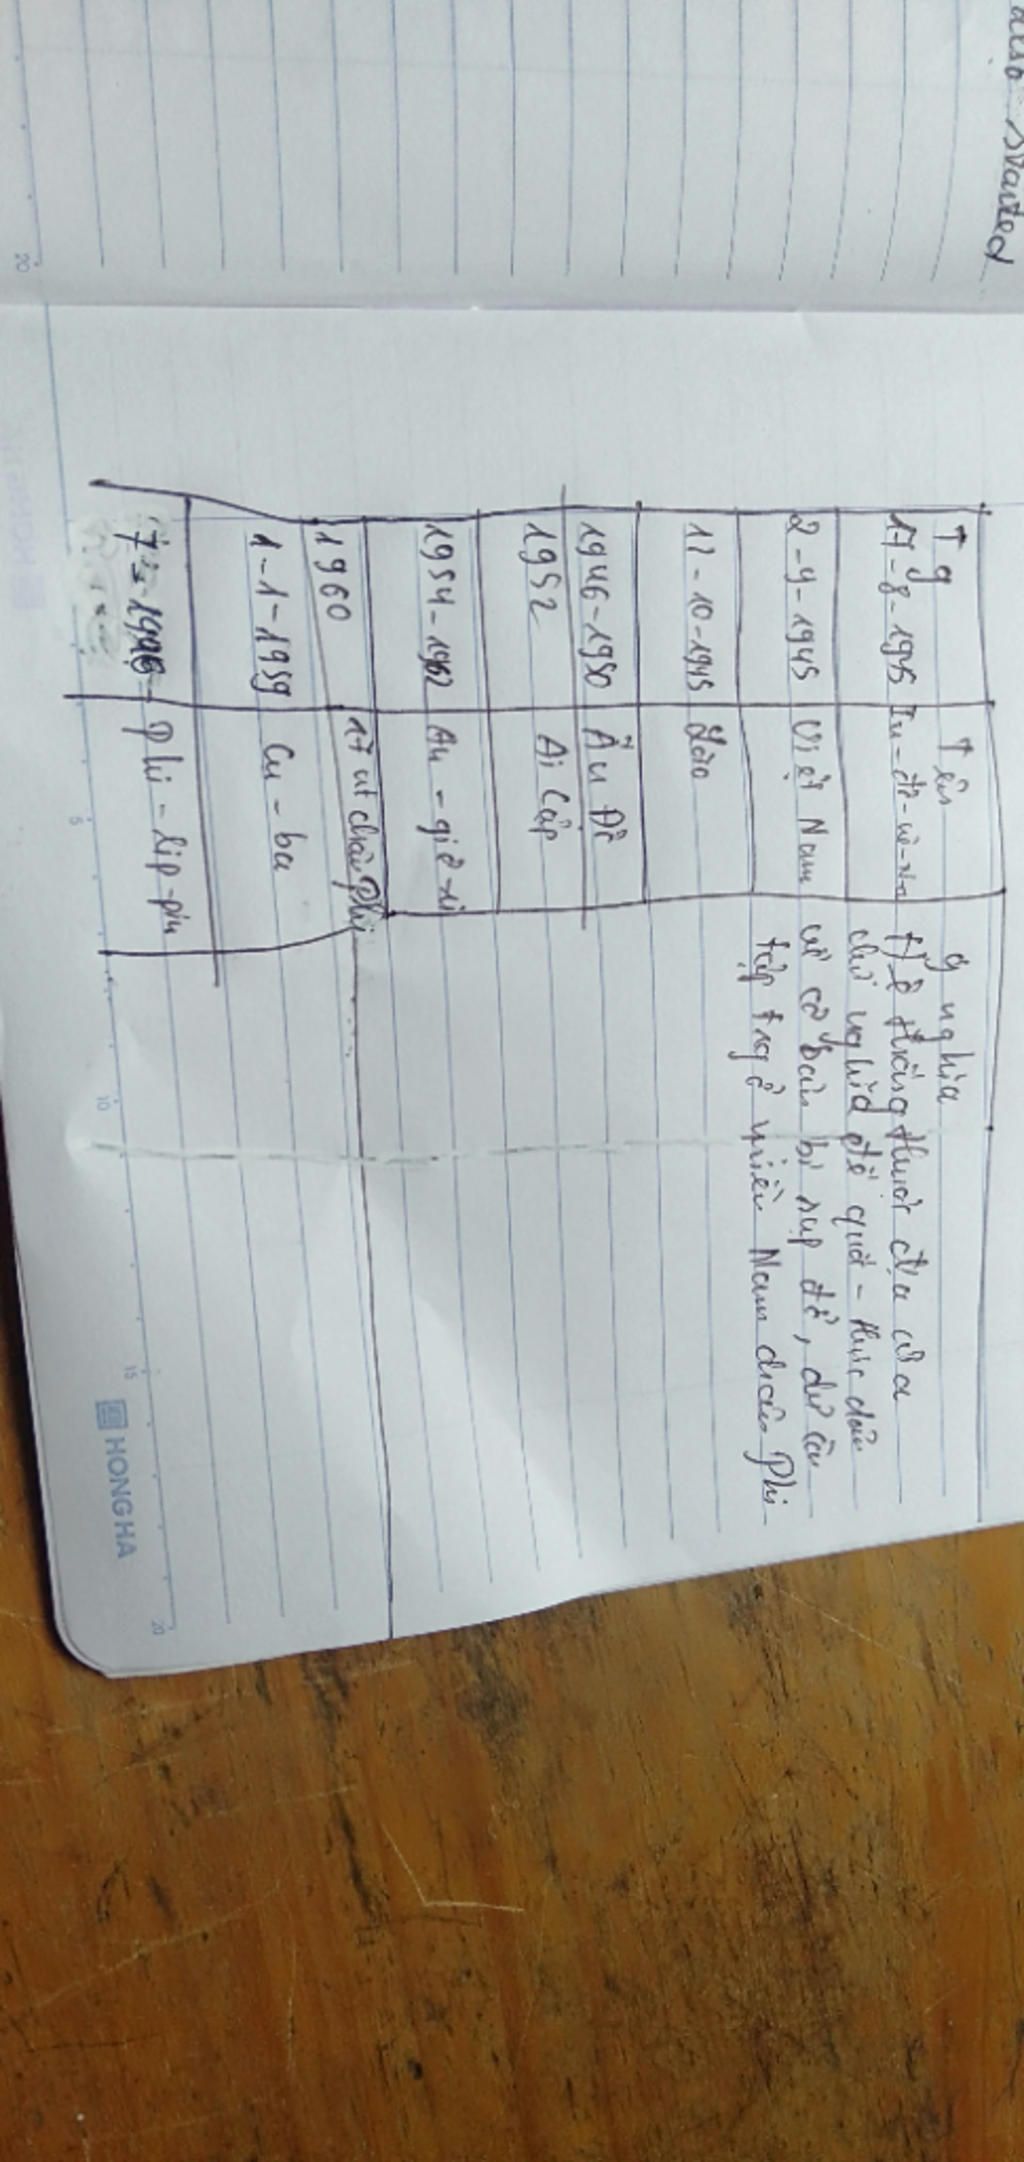 also started
Tg Tên ý nghĩa
17-8-1945 In-đô-nê-xi-a Hệ thống thuộc địa của
chủ nghĩa đế quốc - thực dân
2-9-1945 Việt Nam về cơ bản bị sụp đổ, chỉ còn
tập trg ở miền Nam châu Phi
12-10-1945 Lào
1946-1950 Ấn Độ
1952 Ai Cập
1954-1962 An-giê-ri
1960 17 nc châu Phi
1-1-1959 Cu-ba
1946 Phi-lip-pin
HONG HA
5
10
15
20
20